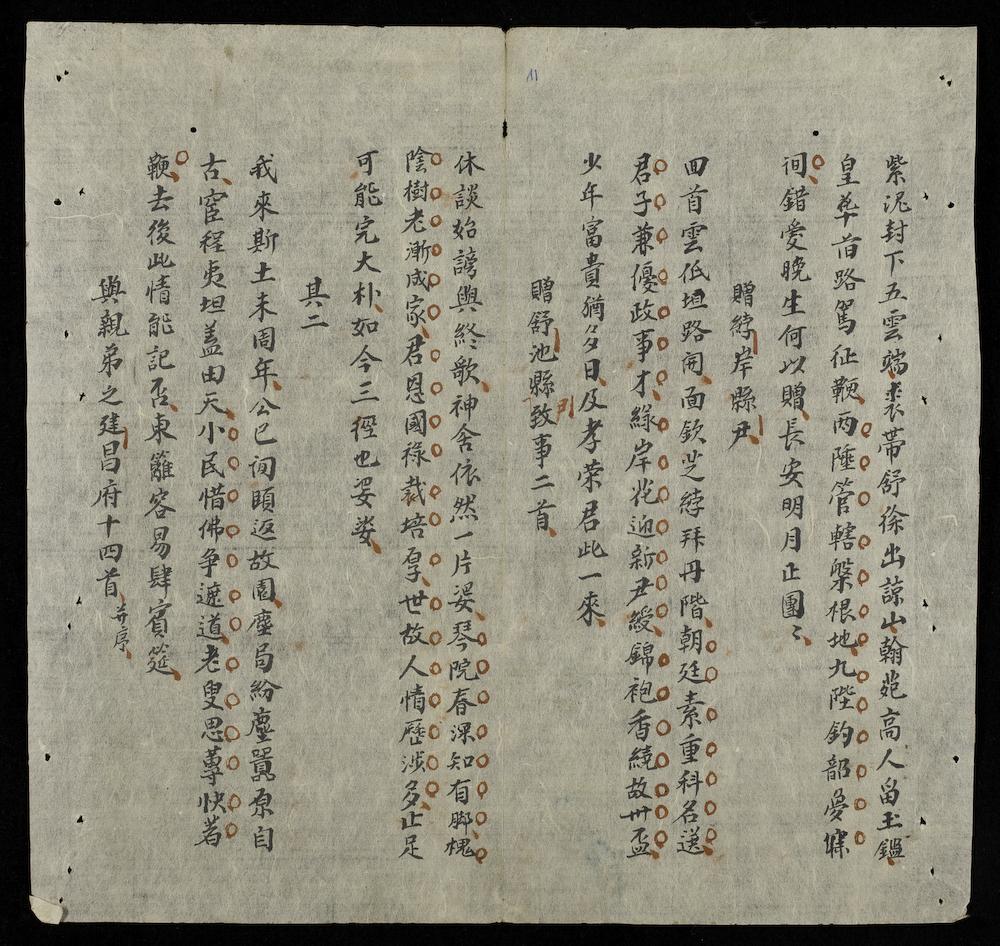 11
紫泥封下五雲端裘帶舒徐出諒山翰苑高人留玉鑑
皇華首路駕征鞭两陲管轄槃根地九陛鈞韶夢寐
间錯愛晚生何以贈長安明月正團〻
贈綍岸縣尹
囬首雲低坦路開面欽芝綍拜丹階朝廷素重科名選
君子兼優政事才綠岸花迎新尹綬錦袍香繞故卅盃
少年富貴猶多日及孝荣君此一來
贈舒池縣致事二首
休談始謗與終歌神舍依然一片姿琴院春深知有脚槐
陰樹老漸成家君恩國祿裁培厚世故人情歷涉多止足
可能完大朴如今三徑也婆娑
其二
我來斯土未周年公已间頤返故園塵局紛塵囂原自
古宦程夷坦盖由天小民惜佛争遮道老叟思蓴快着
鞭去後此情能記否東籬容易肆賓筵
與親弟之建昌府十四首并序